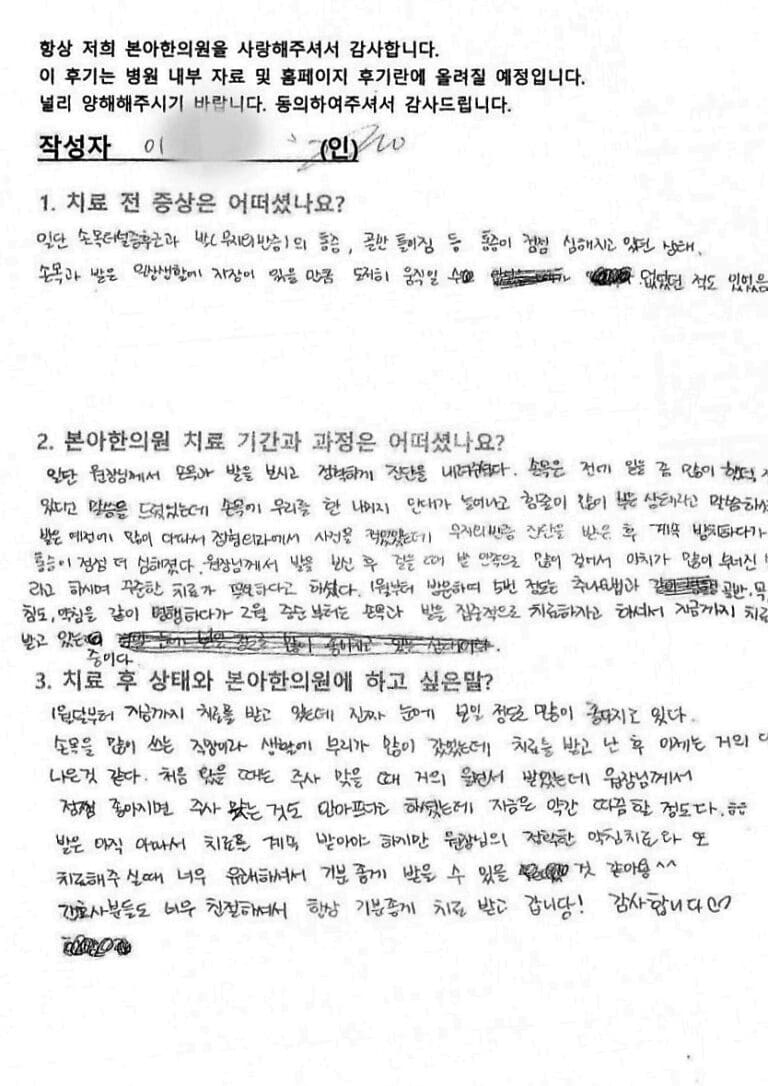 항상 저희 본아한의원을 사랑해주셔서 감사합니다.
이 후기는 병원 내부 자료 및 홈페이지 후기란에 올려질 예정입니다.
널리 양해해주시기 바랍니다. 동의하여주셔서 감사드립니다.
작성자 이 (인)
1. 치료 전 증상은 어떠셨나요?
일단 손목터널증후군과 발(무지외반증)의 통증, 골반 틀어짐 등 통증이 점점 심해지고 있던 상태.
손목과 발은 일상생활에 지장이 있을 만큼 도저히 움직일 수 없었던 적도 있었음
2. 본아한의원 치료 기간과 과정은 어떠셨나요?
일단 원장님께서 손목과 발을 보시고 정확하게 진단을 내려주셨다. 손목은 전에 일을 좀 많이 했던
있다고 말씀을 드렸었는데 손목에 무리를 한 나머지 인대가 늘어나고 힘줄이 많이 부은 상태라고 말씀하셨
발은 예전에 많이 다쳐서 정형외과에서 사진을 찍었었는데 무지외반증 진단을 받은 후 계속 방치하다가
통증이 점점 더 심해졌다. 원장님께서 발을 보신 후 걸을 때 발 안쪽으로 많이 걸어서 아치가 많이 무너진
라고 하시며 꾸준한 치료가 필요하다고 하셨다. 1월부터 방문하여 5번 정도는 추나요법과 골반, 목,
침도, 약침을 같이 병행하다가 2월 중순부터는 손목과 발을 집중적으로 치료하자고 하셔서 지금까지 치료
받고 있는
중이다.
3. 치료 후 상태와 본아한의원에 하고 싶은말?
1월달부터 지금까지 치료를 받고 있는데 진짜 눈에 보일 정도로 많이 좋아지고 있다.
손목을 많이 쓰는 직업이라 생활에 무리가 많이 갔었는데 치료를 받고 난 후 이제는 거의 다
나은것 같다. 처음 왔을 때는 주사 맞을 때 거의 울면서 받았는데 원장님께서
점점 좋아지면 주사 맞는 것도 안아프다고 하셨는데 지금은 약간 따끔할 정도다.
발은 아직 아파서 치료를 계속 받아야 하지만 원장님의 정확한 약침치료와 또
치료해주실때 너무 유쾌하셔서 기분 좋게 받을 수 있을 것 같아용^^
간호사분들도 너무 친절하셔서 항상 기분좋게 치료 받고 갑니당! 감사합니다♡